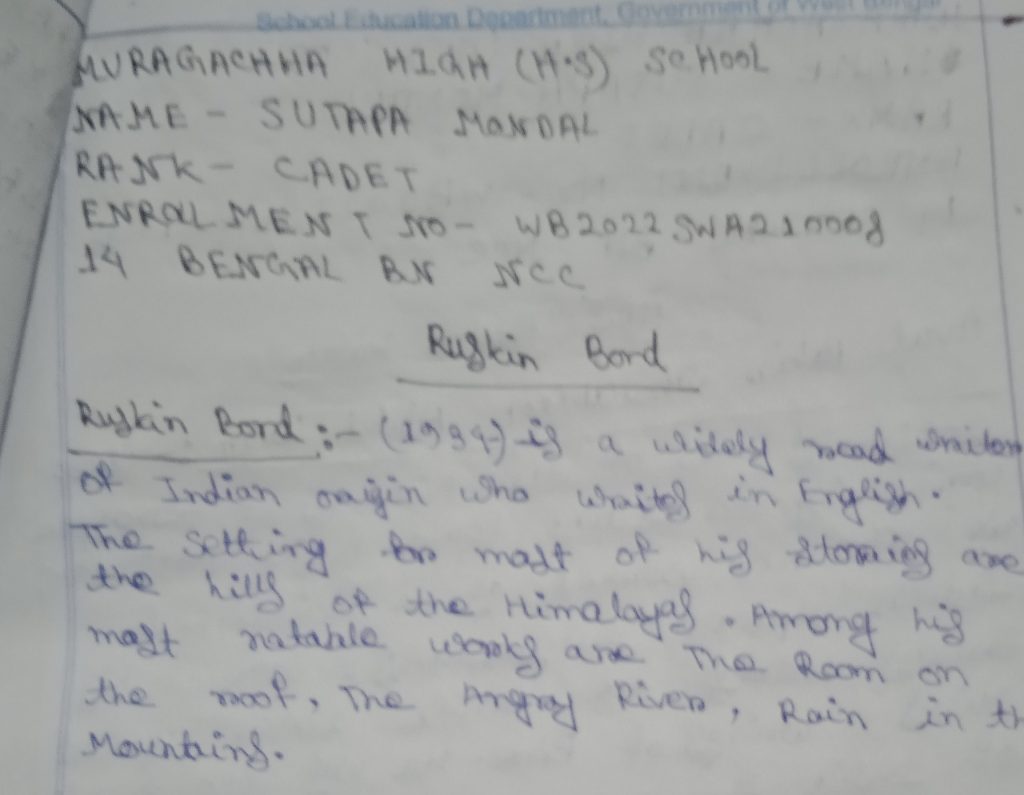 School Education Department, Government of West Bengal
MURAGACHHA HIGH (H.S) SCHOOL
NAME - SUTAPA MONDAL
RANK - CADET
ENROLMENT NO - WB2022SWA210008
14 BENGAL BN NCC
Ruskin Bord
Ruskin Bord :- (1934-) is a widely read writer
of Indian origin who writes in English.
The setting for mast of his storing are
the hills of the Himalayas. Among his
mast natable works are The Room on
the roof, The Angry River, Rain in th
Mountains.